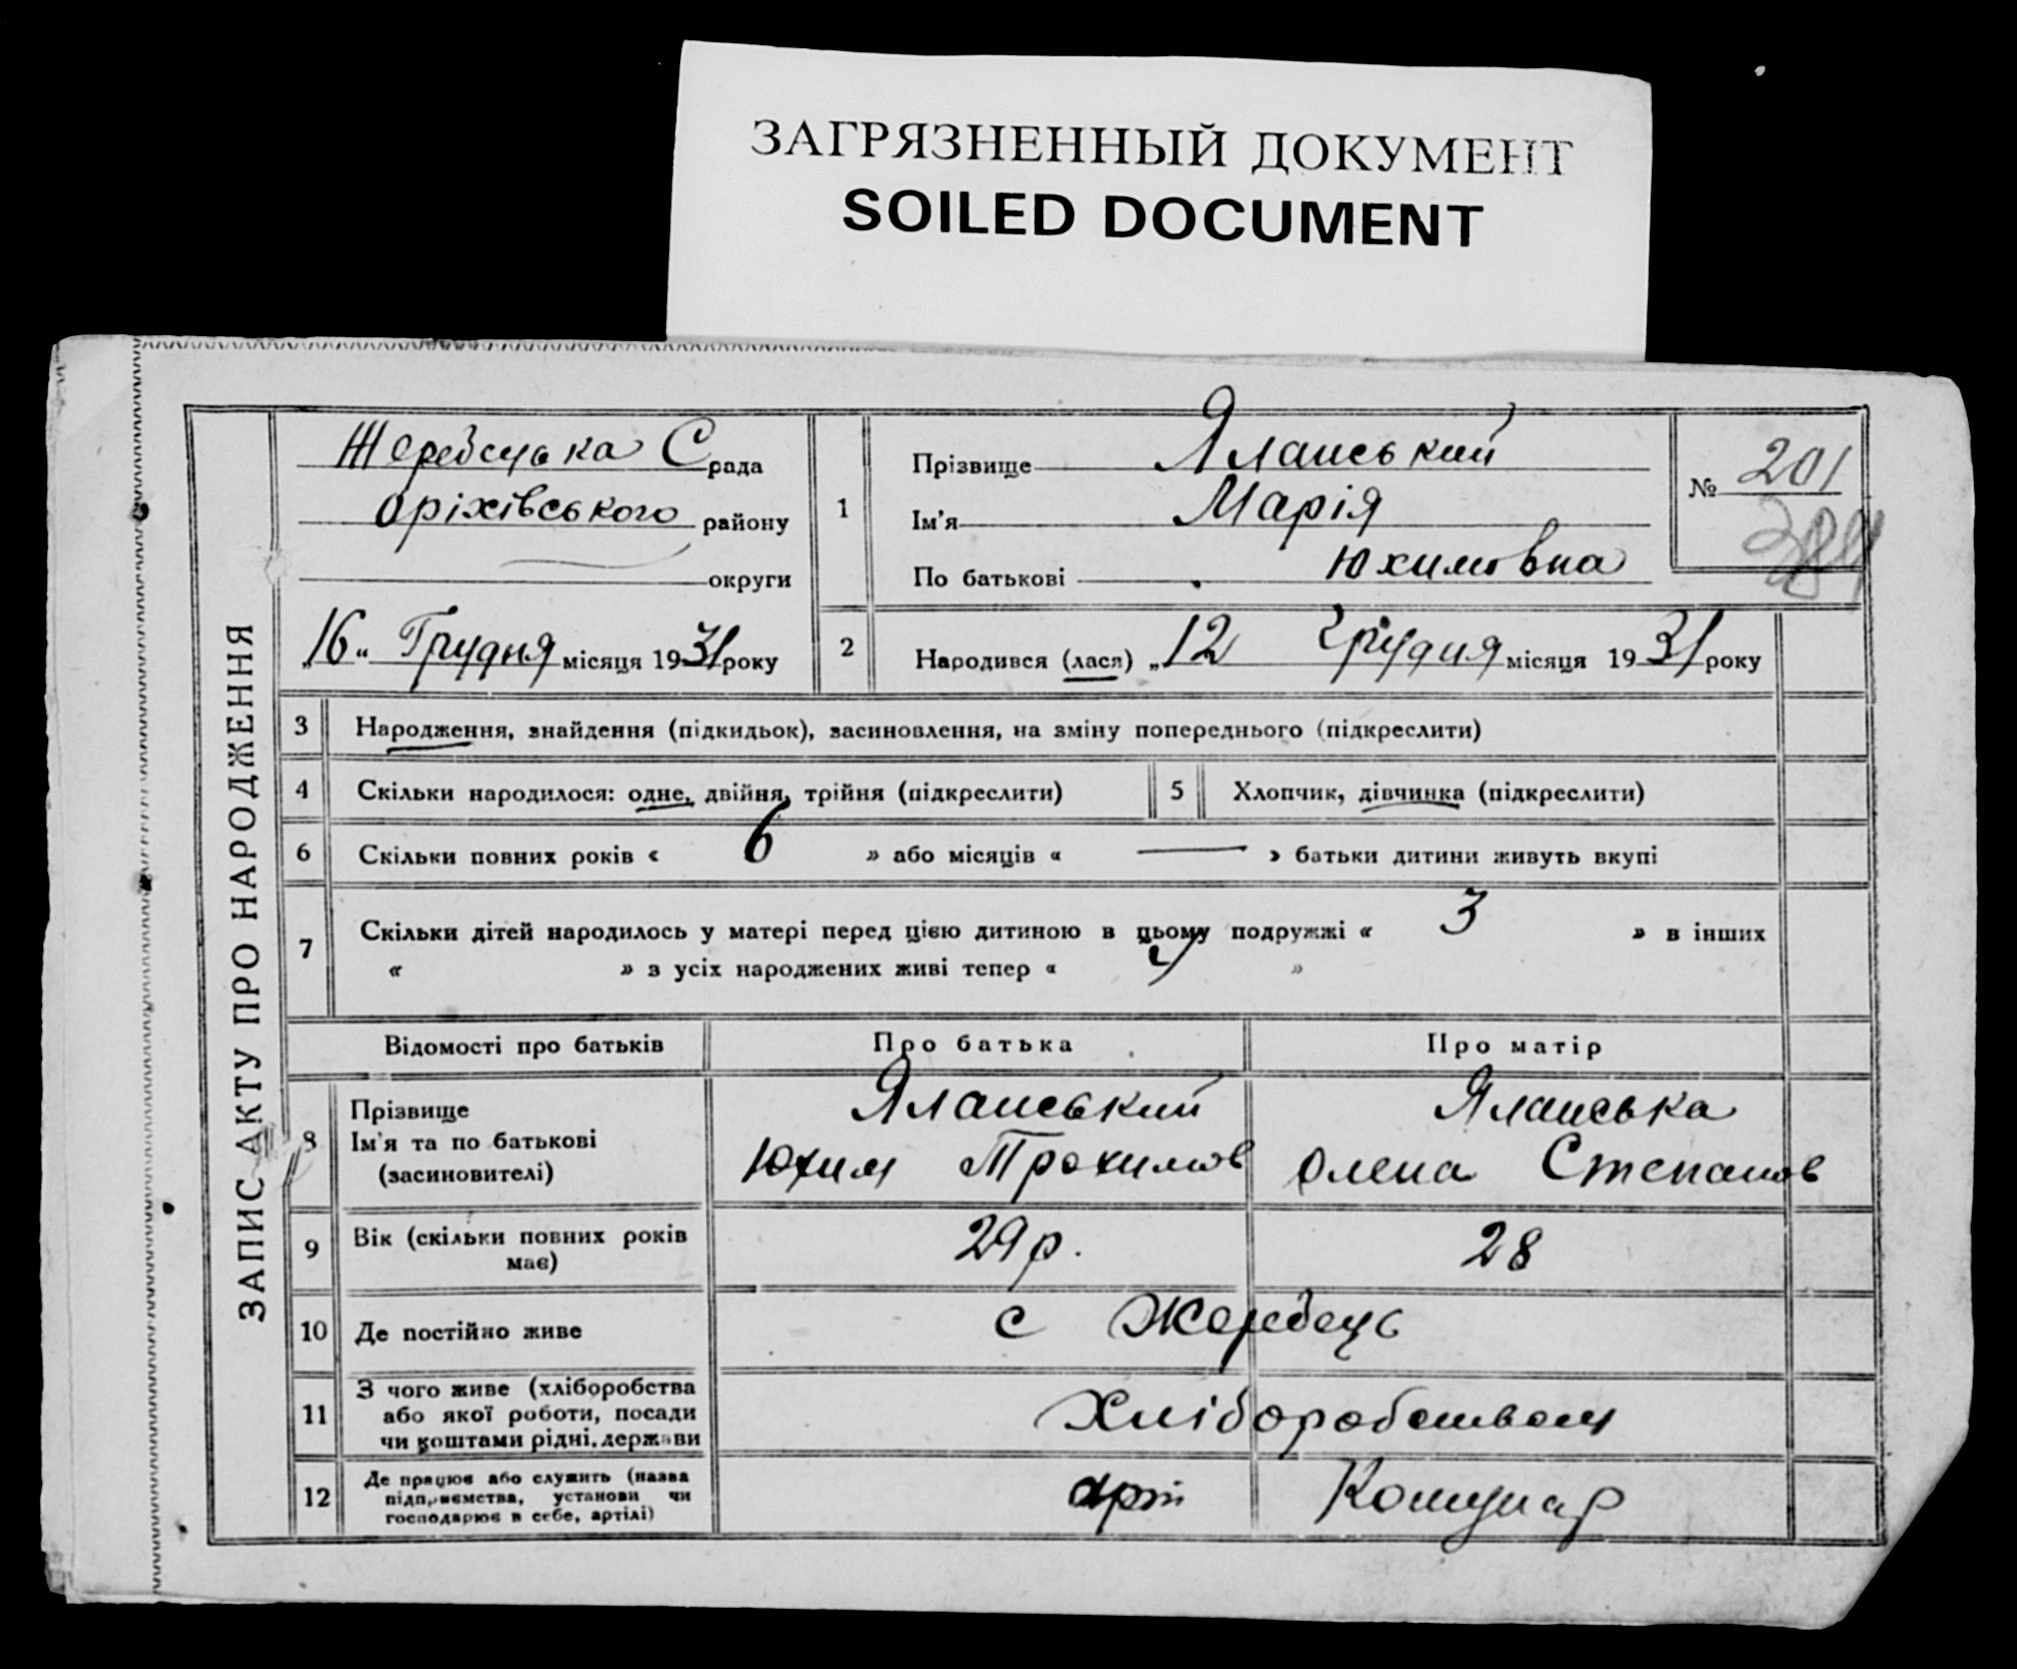 ЗАГРЯЗНЕННЫЙ ДОКУМЕНТ
SOILED DOCUMENT
ЗАПИС АКТУ ПРО НАРОДЖЕННЯ
Жеребецька С рада
Оріхівського району
округи
„16“ Грудня місяця 1931 року
1
Прізвище Яланський
Ім'я Марія
По батькові Юхимовна
№ 201
2 Народився (лася) „12 Грудня місяця 1931 року
3 Народження, знайдення (підкидьок), засиновлення, на зміну попереднього (підкреслити)
4 Скільки народилося: одне, двійня, трійня (підкреслити) 5 Хлопчик, дівчинка (підкреслити)
6 Скільки повних років « 6 » або місяців « — » батьки дитини живуть вкупі
7 Скільки дітей народилось у матері перед цією дитиною в цьому подружжі « 3 » в інших
« » з усіх народжених живі тепер « »
Відомості про батьків Про батька Про матір
8 Прізвище Яланський Яланська
Ім'я та по батькові Юхим Трохимов Олена Степанов
(засиновителі)
9 Вік (скільки повних років має) 29 р. 28
10 Де постійно живе с Жеребець
11 З чого живе (хліборобства
або якої роботи, посади Хліборобством
чи коштами рідні, держави
12 Де працює або служить (назва
підприємства, установи чи арт Комунар
господарює в себе, артілі)